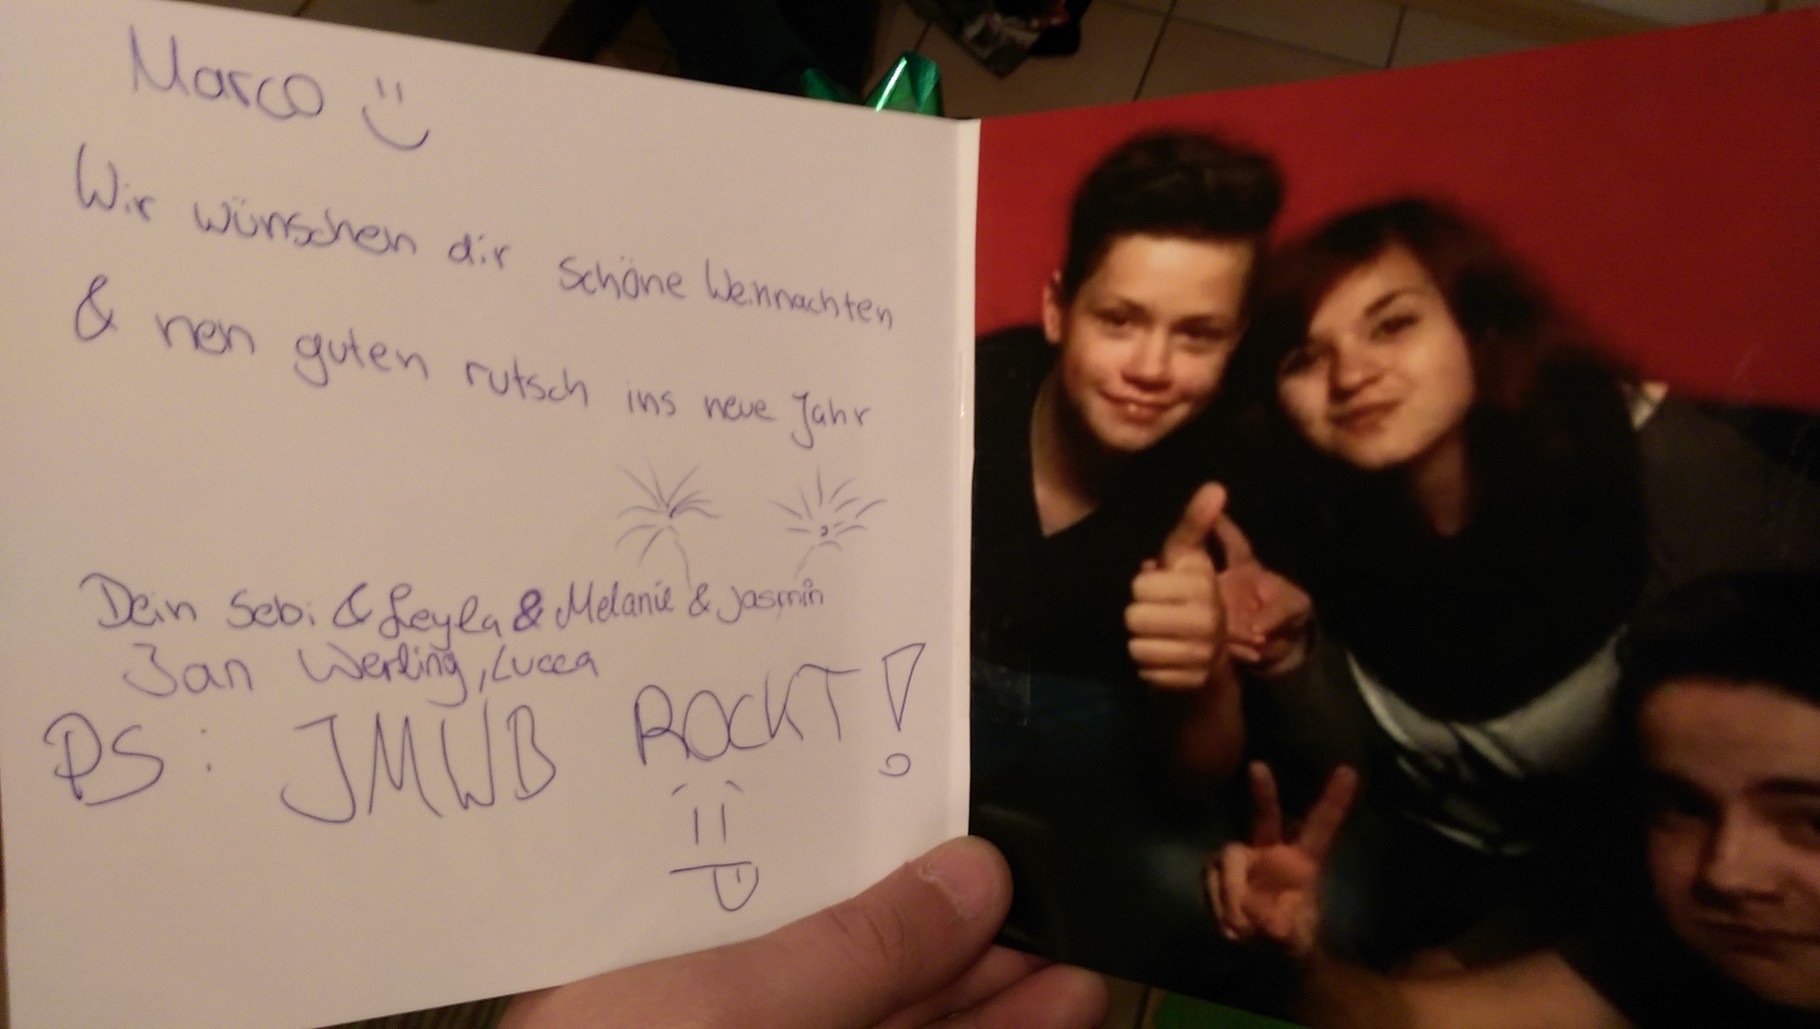 Marco :)
Wir wünschen dir schöne Weihnachten
& nen guten rutsch ins neue Jahr
Dein Sebi & Leyla & Melanie & Jasmin
Jan Werling, Lucca
PS: JMWB ROCKT!